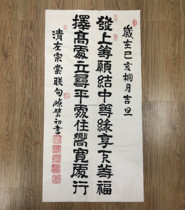 歲在己亥桐月吉旦
發上等願結中等緣享下等福
擇高處立尋平處住嚮寬處行
清左宗棠聯句